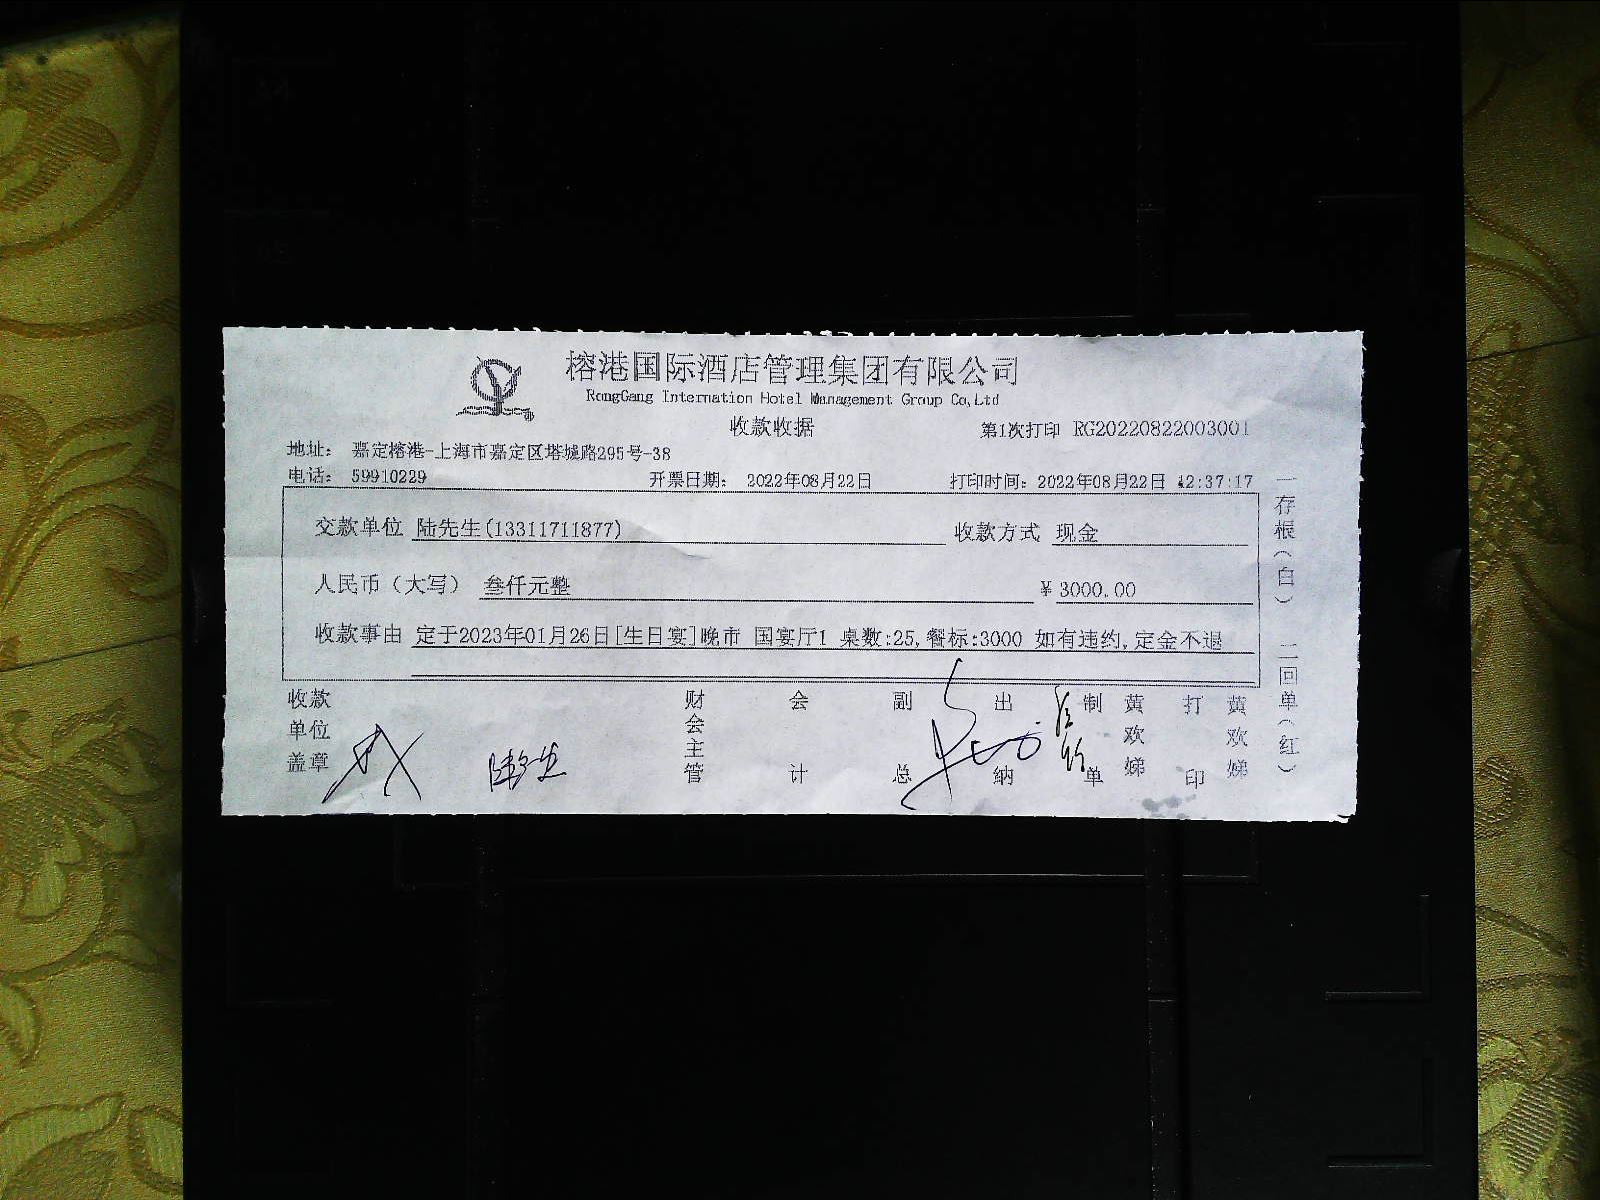 榕港国际酒店管理集团有限公司
RongGang Internation Hotel Management Group Co,Ltd
收款收据
第1次打印 RG20220822003001
地址： 嘉定榕港-上海市嘉定区塔城路295号-38
电话： 59910229 开票日期： 2022年08月22日 打印时间：2022年08月22日 12:37:17
交款单位 陆先生(13311711877) 收款方式 现金
人民币（大写） 叁仟元整 ￥3000.00
收款事由 定于2023年01月26日[生日宴]晚市 国宴厅1 桌数:25,餐标:3000 如有违约,定金不退
收款单位盖章 陆先生 财会主管 会计 副总 出纳 制单 黄欢娣 打印 黄欢娣
一存根（白） 二回单（红）